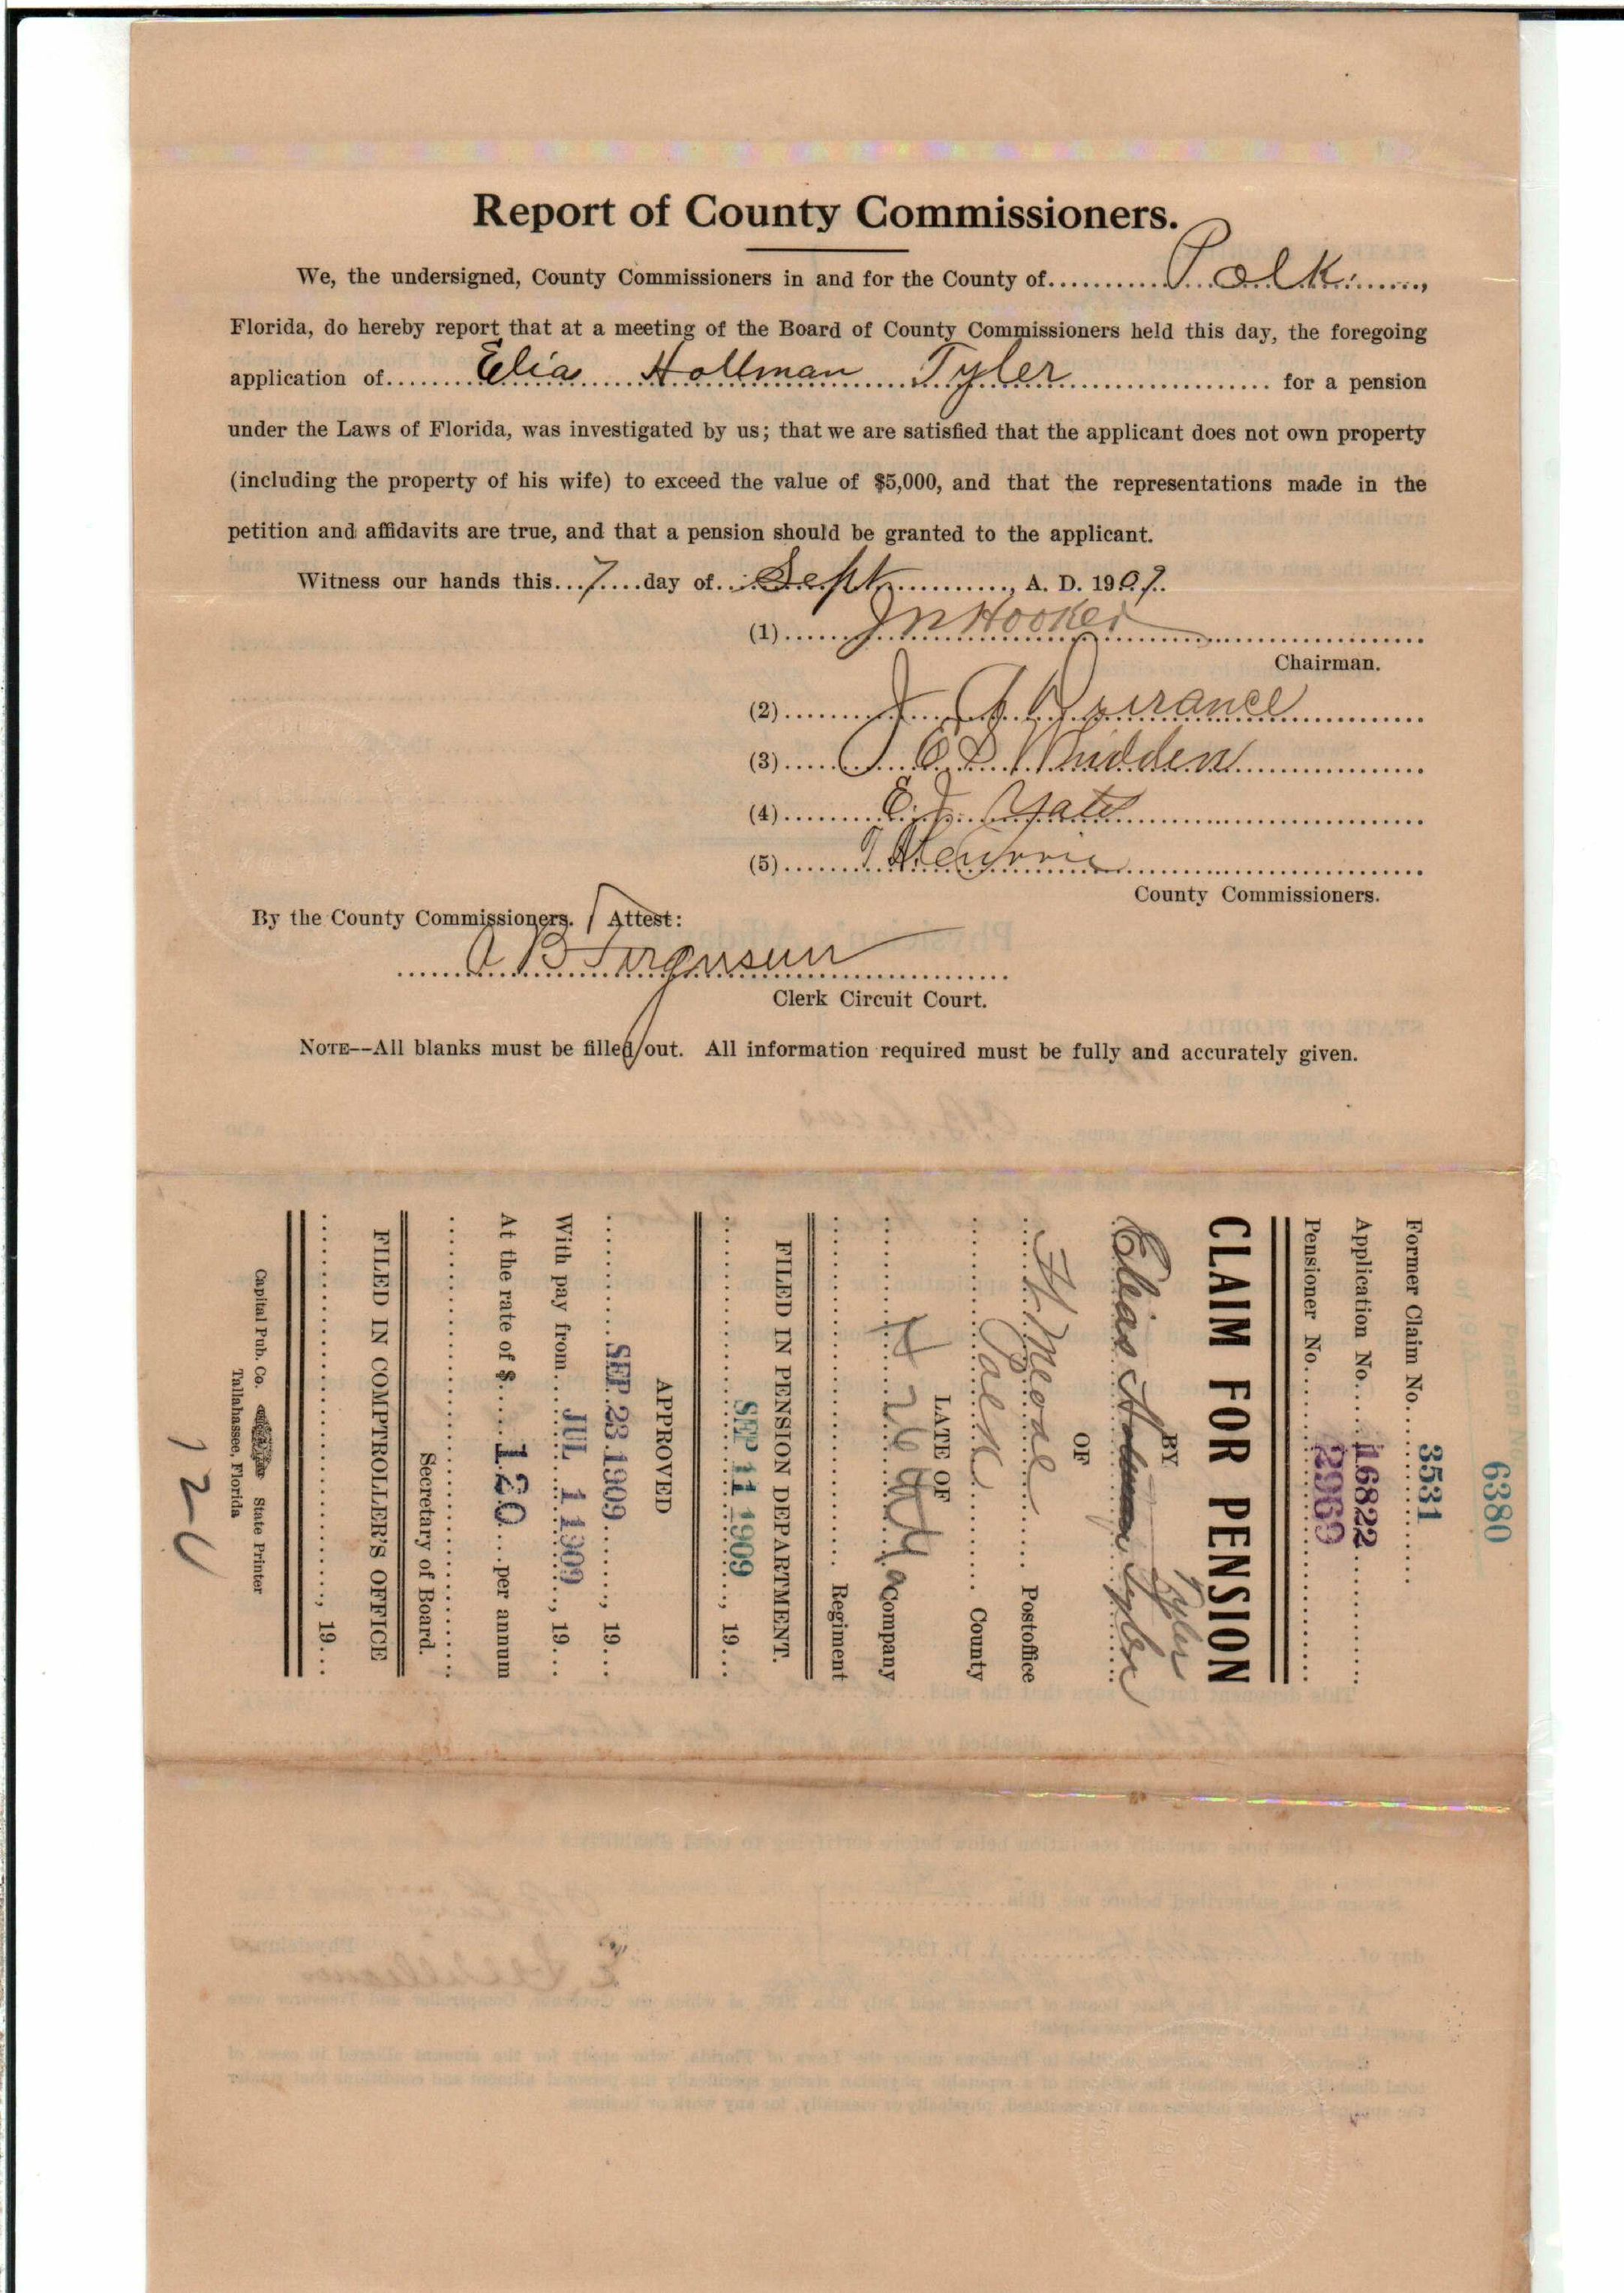 Report of County Commissioners.
We, the undersigned, County Commissioners in and for the County of Polk,
Florida, do hereby report that at a meeting of the Board of County Commissioners held this day, the foregoing
application of Elias Hollman Tyler for a pension
under the Laws of Florida, was investigated by us; that we are satisfied that the applicant does not own property
(including the property of his wife) to exceed the value of $5,000, and that the representations made in the
petition and affidavits are true, and that a pension should be granted to the applicant.
Witness our hands this 7 day of Sept, A. D. 1909.
(1) J N Hooker
Chairman.
(2) J A Durrance
(3) J E D Whidden
(4) E. J. Yates
(5)
County Commissioners.
By the County Commissioners. Attest:
A B Ferguson
Clerk Circuit Court.
NOTE--All blanks must be filled out. All information required must be fully and accurately given.
6380
Former Claim No. 3531
Application No. 16822
Pensioner No. 2969
CLAIM FOR PENSION
BY
Tyler
Elias Holman Tyler
OF
Ft Meade Postoffice
Polk County
LATE OF
H Company
Regiment
FILED IN PENSION DEPARTMENT.
SEP 11 1909, 19
APPROVED
SEP 23 1909, 19
With pay from JUL 1 1909, 19
At the rate of $ 120 per annum
Secretary of Board.
FILED IN COMPTROLLER'S OFFICE
, 19
Capital Pub. Co. State Printer
Tallahassee, Florida
120